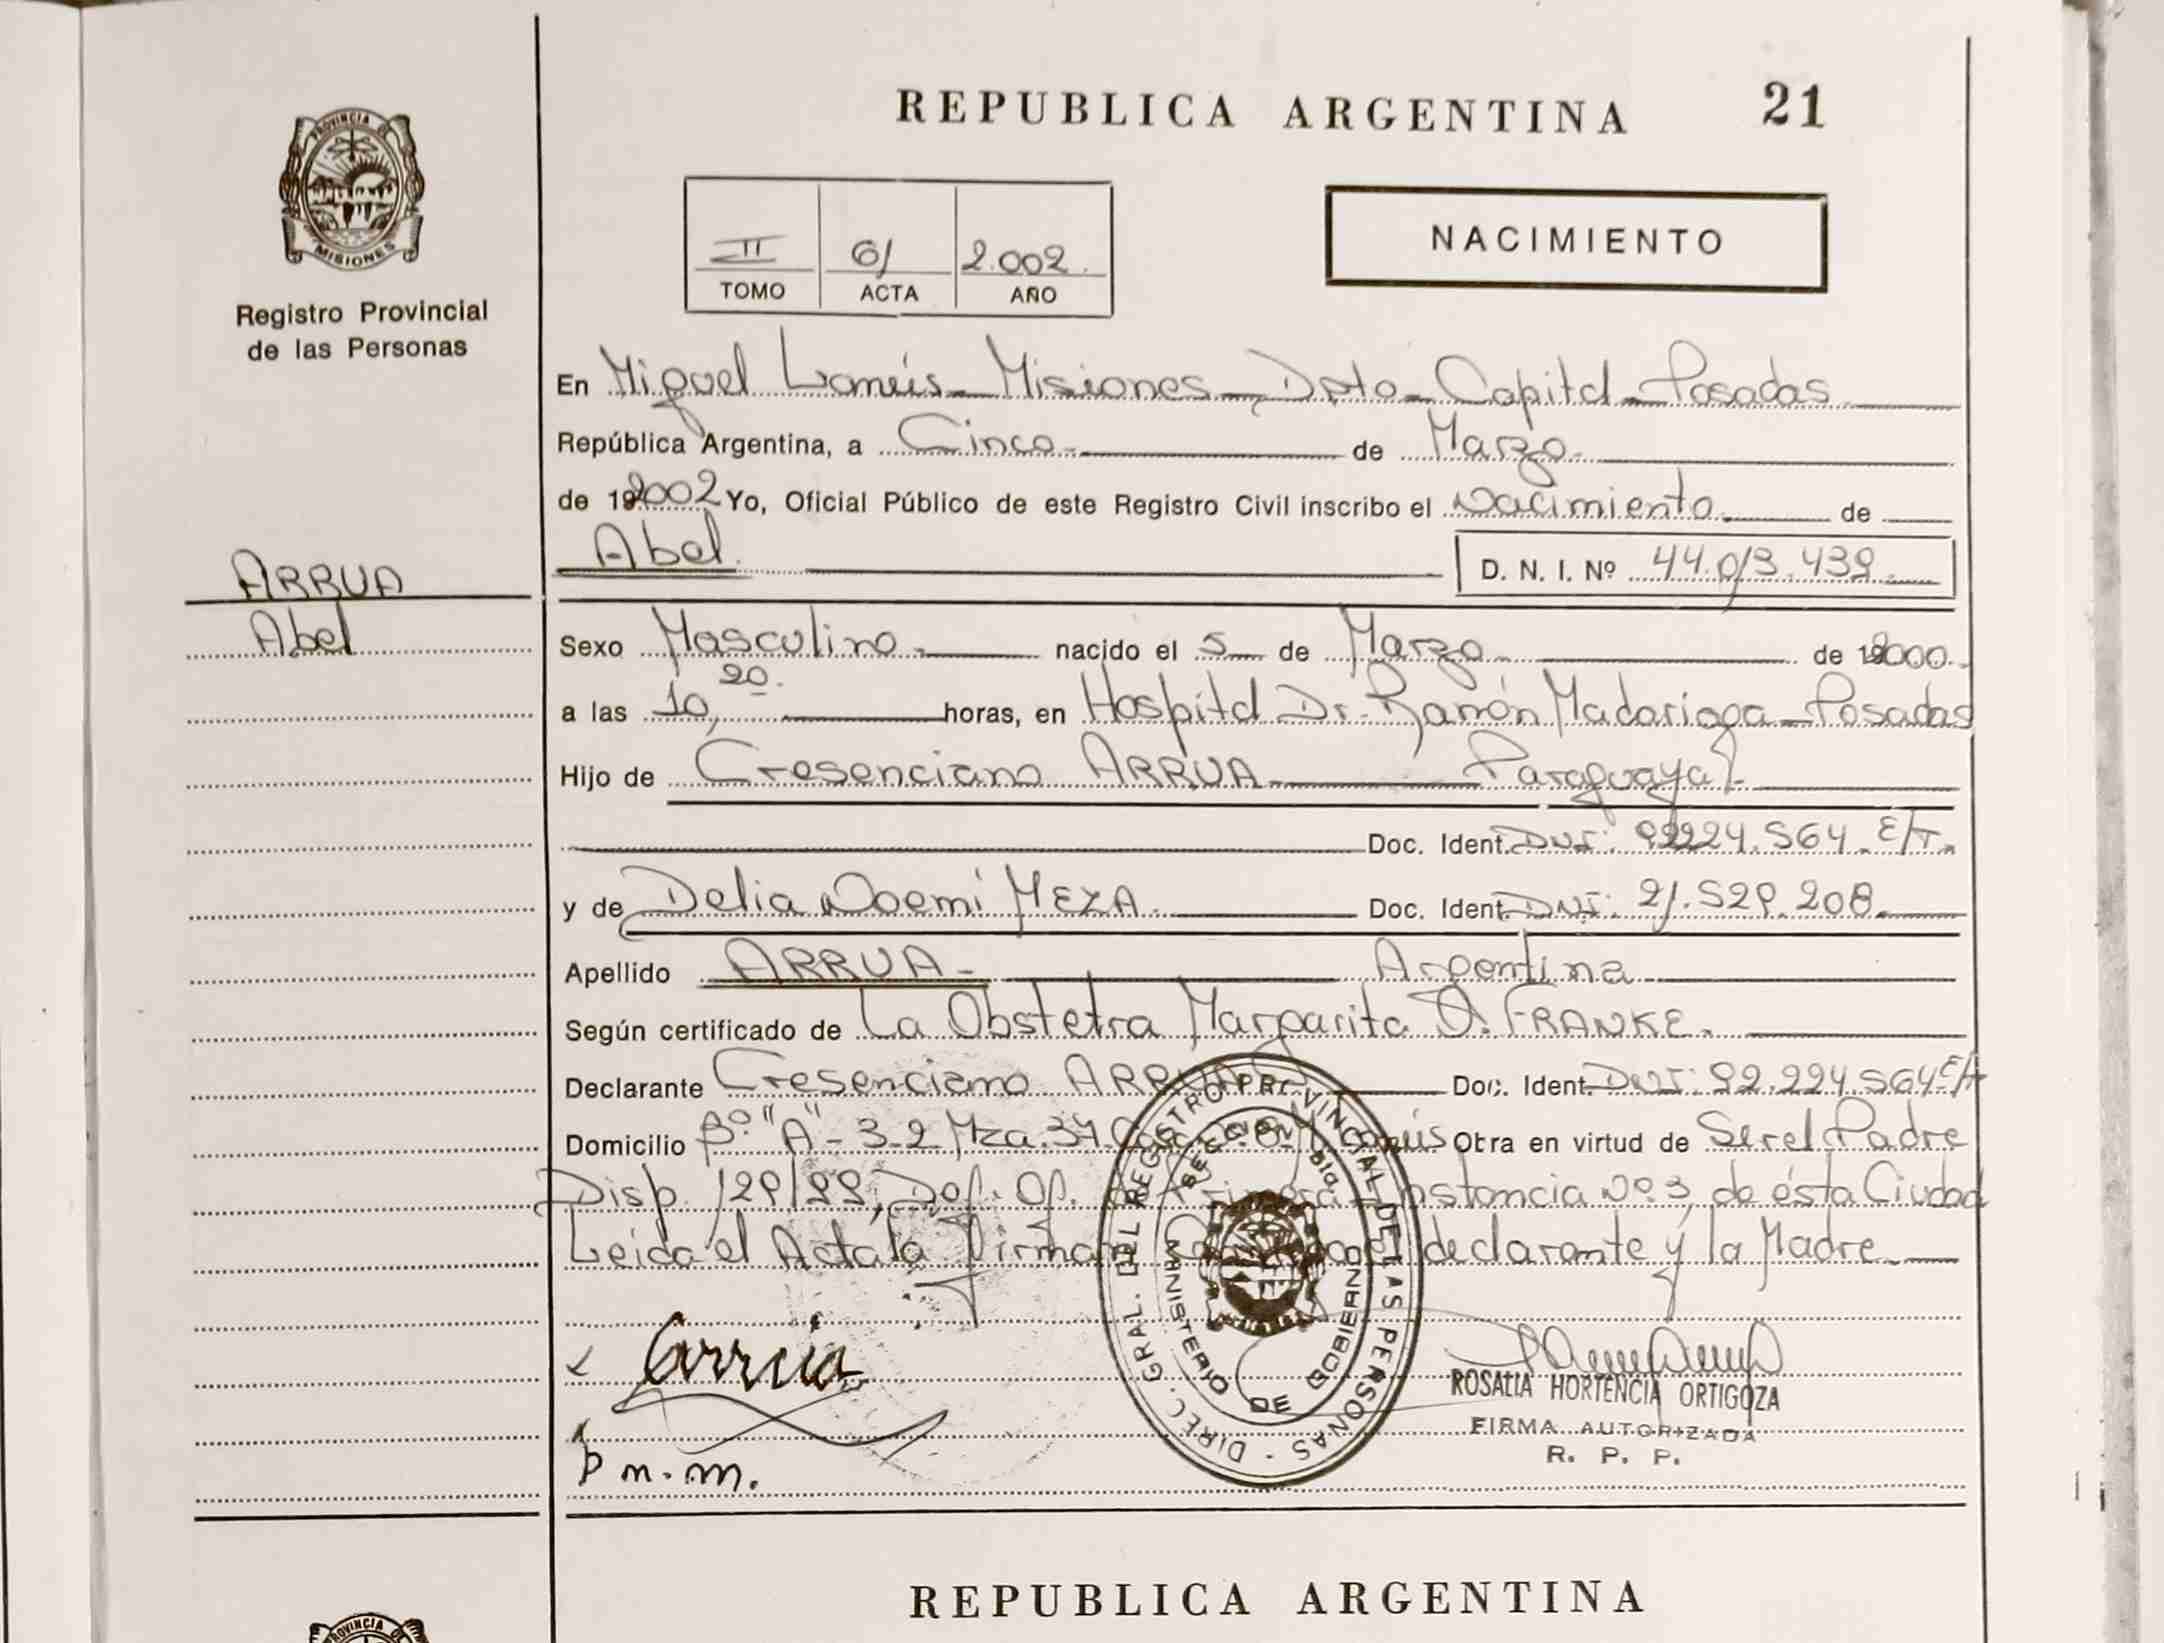 REPUBLICA ARGENTINA 21
PROVINCIA DE
MISIONES
Registro Provincial
de las Personas
II 61 2.002
TOMO ACTA AÑO
NACIMIENTO
En Miguel Lanús - Misiones - Dpto - Capital - Posadas
República Argentina, a Cinco de Marzo
de 192002 Yo, Oficial Público de este Registro Civil inscribo el Nacimiento de
Abel. D. N. I. Nº 44.013.439
ARRUA
Abel
Sexo Masculino nacido el 5 de Marzo de 192000
a las 10,20 horas, en Hospital Dr. Ramón Madariaga - Posadas
Hijo de Cresenciano ARRUA Paraguaya
Doc. Ident. DNI: 92.224.564. E/T.
y de Delia Noemí MEZA Doc. Ident. DNI: 21.529.208
Apellido ARRUA - Argentina
Según certificado de La Obstetra Margarita FRANKE.
Declarante Cresenciano ARRUA Doc. Ident. DNI: 92.224.564
Domicilio Bº "A" - 3-2 Mza. 34 Lanús Otra en virtud de Ser el Padre
Disp. 129/99, Def. Of. Instancia Nº 3, de ésta Ciudad
Leida el Acta la Firman declarante y la Madre
DIREC. GRAL. DEL REGISTRO PROVINCIAL DE LAS PERSONAS
MINISTERIO DE GOBIERNO
Arrúa
p n. m.
ROSALIA HORTENCIA ORTIGOZA
FIRMA AUTORIZADA
R. P. P.
REPUBLICA ARGENTINA
PROVINCIA